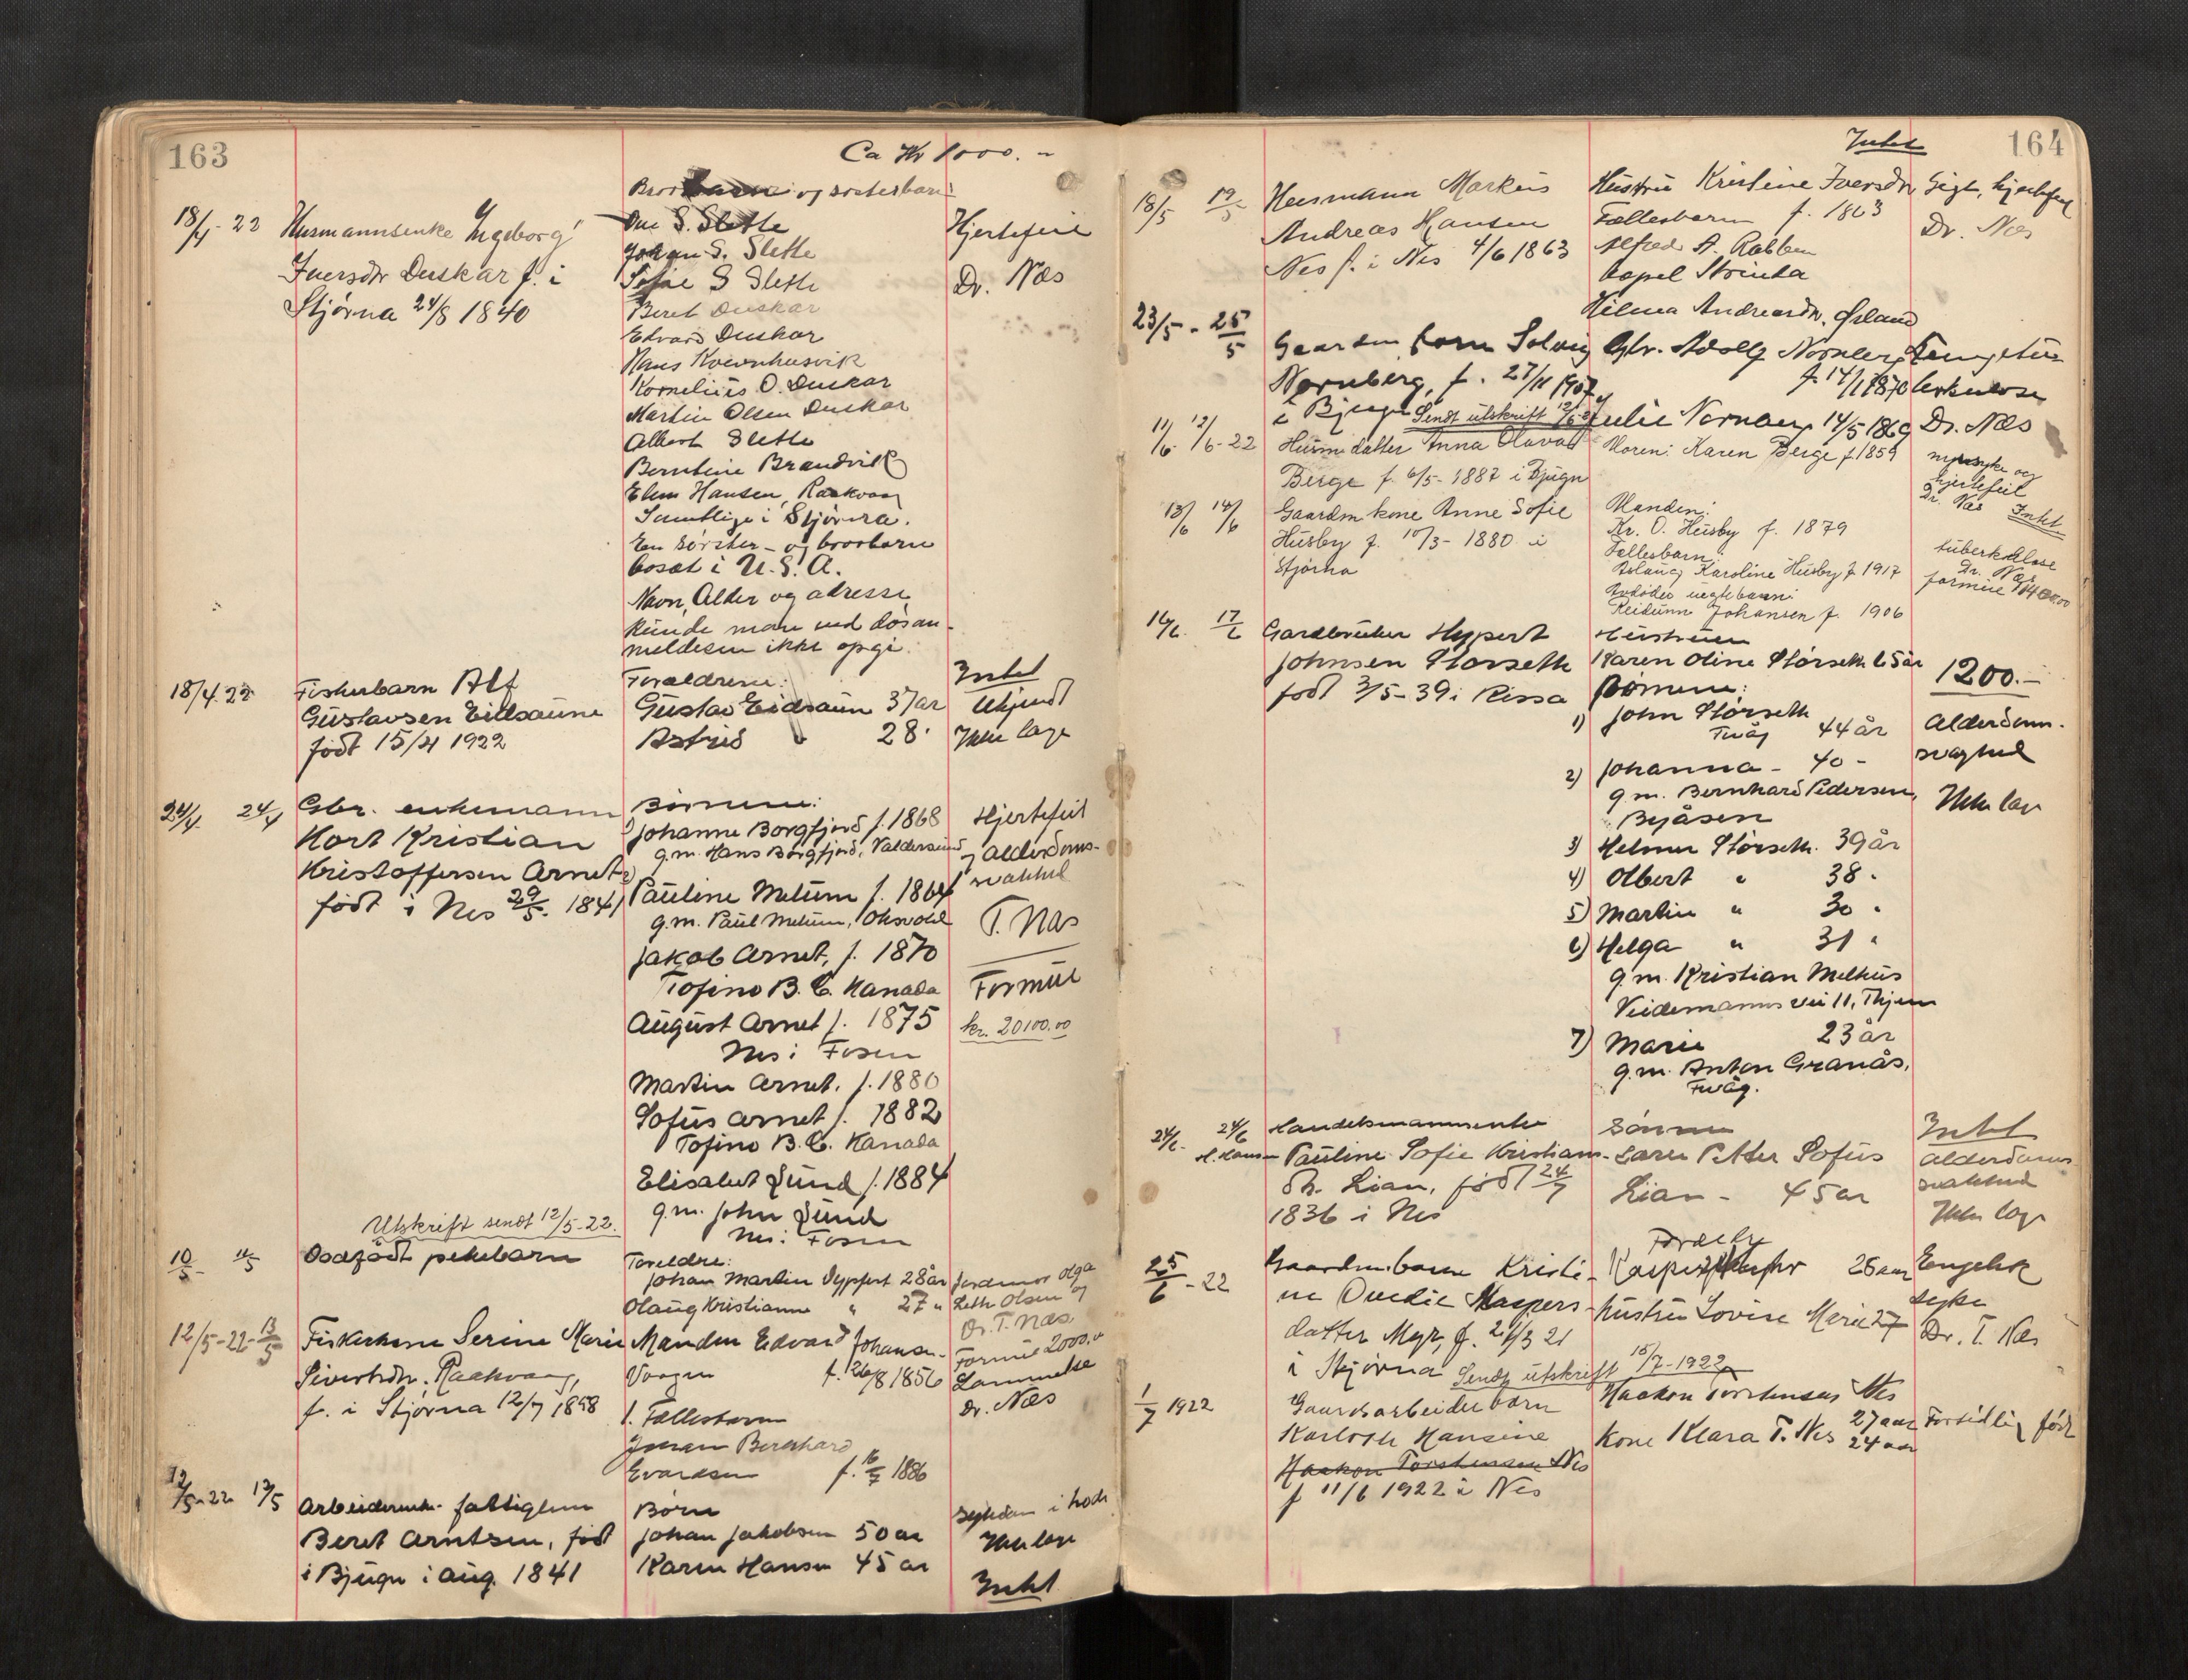 163
Ca Kr 1000.-
og søsterbarn
18/4-22 Husmannsenke Ingeborg
Iversdtr Duskar f. i
Stjørna 24/8 1840
Ane S. Slette
Johan S. Slette
Sofie S Slette
Beret Duskar
Edvard Duskar
Hans
Kornelius O. Duskar
Martin Olsen Duskar
Albert Slette
Berntine Brandvik
Elen Hansen, Raakvaag
Samtlige i Stjørna.
En søster- og brorbarn
bosat i U.S.A.
Navn, Alder og adresse
kunde man ved dødsan-
meldesen ikke opgi.
Hjertefeil
Dr. Næs
18/4 22 Fiskerbarn Alf
Gustavsen Eidsaune
født 15/4 1922
Forældrene:
Gustav Eidsaun 37 år
Astrid " 28.
Intet
Ukjendt
Ikke læge
24/4. 24/4 Gbr. enkemann
Kort Kristian
Kristoffersen Arnet
født i Nes 29/5. 1841
Børnene:
1) Johanne Borgfjord f. 1868
g.m. Hans Borgfjord, Valdersund
2) Pauline Melum f. 1864
g.m. Paul Melum, Oksvold
Jakob Arnet, f. 1870
Tofino B.C. Kanada
August Arnet f. 1875
Nes i Fosen
Martin Arnet. f. 1880
Sofus Arnet f. 1882
Tofino B.C. Kanada
Elisabet Lund f. 1884
g.m. John Lund
Nes i Fosen
Hjertefeil
alderdoms-
svakhed
T. Næs
Formue
kr. 20100.00
Utskrift sendt 12/5-22.
10/5- 11/5 Dødfødt pikebarn
Foreldre:
Johan Martin Sypfert 28 år
Olaug Kristianne " 27 "
Jordmor Olga
Leth Olsen og
Dr. T. Næs
12/5-22- 13/5 Fiskerkone Serine Marie
Sivertsdtr. Raakvaag,
f. i Stjørna 12/7 1858
Manden Edvard Johansen
Vaagen f. 26/8 1856
1. Fællesbarn
Johan Bernhard
Evardsen f. 16/7 1886
Formue 2000.00
Lammelse
Dr. Næs
12/5-22 13/5 Arbeiderenk. fattiglem
Beret Arntsen, født
i Bjugn i aug. 1841
Børn
Johan Jakobsen 50 år
Karen Hansen 45 år
Sygdom i hode
Ikke læge
Intet
164
Intet
18/5 19/5 Husmann Markus
Andreas Hansen
Nes f. i Nes 4/6 1863
Hustru Kristine Iversdtr
Fællesbarn f. 1863
Alfred A. Rabben
kapel Strinda
Hilma Andreasdtr. Ørland
Gigt, hjertefeil
Dr. Næs
23/5 - 25/5 Gaardm barn Solveig
Nornberg, f. 27/11 1907
i Bjugn Sendt utskrift
Gbr. Adolf Nornberg
f. 14/1 1870
Julie Nornberg 14/5 1869
Lungetu-
berkulose
Dr. Næs
11/6. 12/6-22 Husm datter Anna Olava
Berge f. 6/5-1887 i Bjugn
Moren: Karen Berge f 1859
nyresyke og
hjertefeil
Dr. Næs Intet
13/6 14/6 Gaardm kone Anne Sofie
Husby f. 10/3-1880 i
Stjørna
Manden:
Kr. O. Husby f. 1879
Fellesbarn:
Aslaug Karoline Husby f 1917
Avdødes uegte barn:
Reidunn Johansen f. 1906
tuberkulose
Dr. Næs
formue
16/6. 17/6 Gardbruker Hypert
Johnsen Størseth
født 3/5-39 i Rissa
Hustruen
Karen Oline Størseth 65 år
Børnene:
1) John Størseth
44 år
2) Johanna - 40 -
g.m. Bernhard Pedersen,
Byåsen
3) Helmer Størseth. 39 år
4) Olbert " 38 .
5) Martin " 30 .
6) Helga " 31 "
g.m. Kristian Melhus
Veidemanns vei 11, Thjem
7) Marie 23 år
g.m. Anton Granås,
1200.-
Alderdom.
svaghed
Ikke læge
24/6- 24/6 Handelsmannsenke
Pauline Sofie Kristians-
Dt. Lian, født 24/7
1836 i Nes
Sønnen
Lars Petter Sofus
Lian - 45 år
Intet
alderdoms
svakhed
Ikke læge
25/6-22 Gaardm.barn Kristi-
ne Ovedie Kaspers-
datter Myr, f. 21/3 21
i Stjørna Sendt utskrift 15/7-1922
Forældre
26 aar
hustru Lovise Marie 27
Engelsk
syke
Dr. T. Næs
1/7 1922 Gaardsarbeider barn
Karloth Hansine
Haakon Torstensen Nes
f 11/6 1922 i Nes
Haakon Torstensen Nes
27 aar
kone Klara T. Nes 24 aar
Fortidlig født